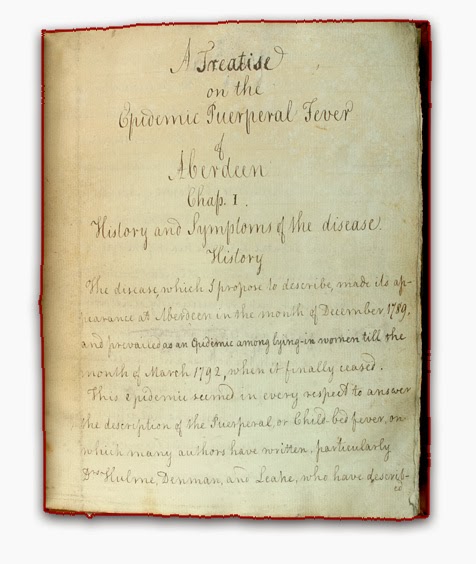 A Treatise
on the
Epidemic Puerperal Fever
of
Aberdeen
Chap. I.
History and Symptoms of the disease.
History
The disease, which I propose to describe, made its ap-
pearance at Aberdeen in the month of December 1789,
and prevailed as an Epidemic among lying-in women till the
month of March 1792, when it finally ceased.
This Epidemic seemed in every respect to answer
the description of the Puerperal, or Child-bed fever, on
which many authors have written, particularly
Drs. Hulme, Denman, and Leake, who have describ-
ed